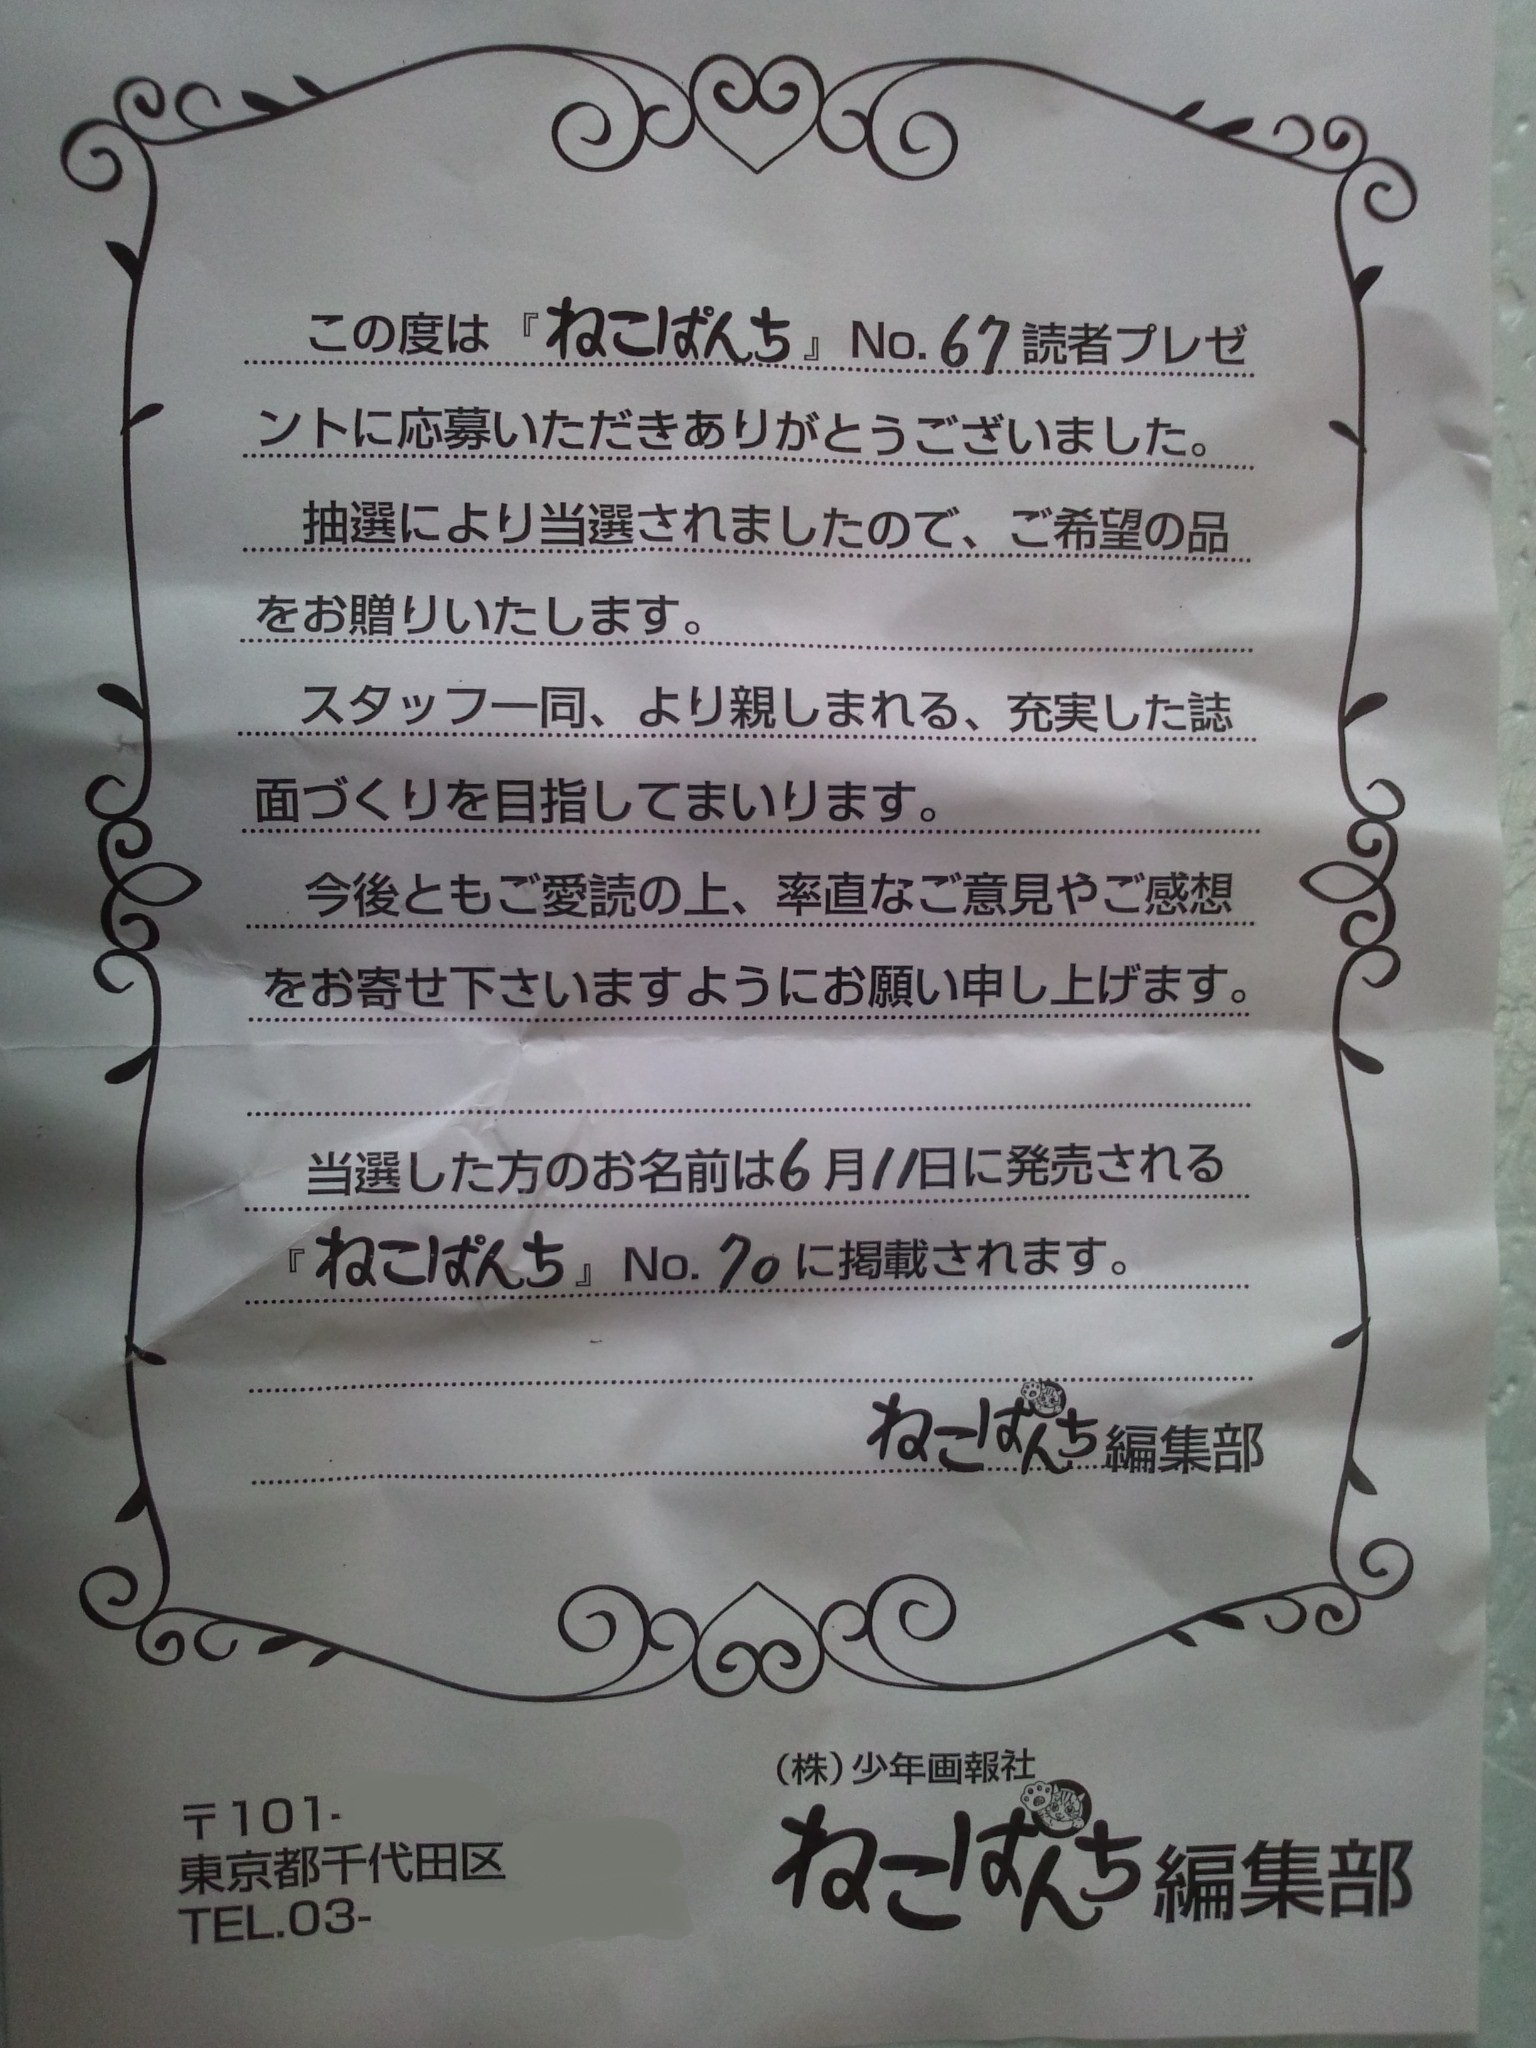 この度は『ねこぱんち』No.67読者プレゼ
ントに応募いただきありがとうございました。
抽選により当選されましたので、ご希望の品
をお贈りいたします。
スタッフ一同、より親しまれる、充実した誌
面づくりを目指してまいります。
今後ともご愛読の上、率直なご意見やご感想
をお寄せ下さいますようにお願い申し上げます。
当選した方のお名前は6月11日に発売される
『ねこぱんち』No.70に掲載されます。
ねこぱんち編集部
(株)少年画報社
ねこぱんち編集部
〒101-
東京都千代田区
TEL.03-